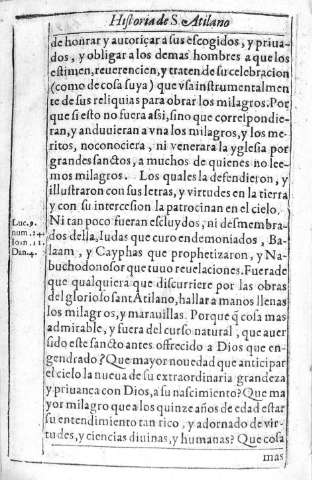 Historia de S. Atilano
de honrar y autoriçar a sus escogidos, y priua-
dos, y obligar a los demas hombres a que los
estimen, reuerencien, y traten de su celebracion
(como de cosa suya) que vsa instrumentalmen
te de sus reliquias para obrar los milagros. Por
que si esto no fuera assi, sino que correspondie-
ran, y anduuieran a vna los milagros, y los me-
ritos, no conociera, ni venerara la yglesia por
grandes sanctos, a muchos de quienes no lee-
mos milagros. Los quales la defendieron, y
illustraron con sus letras, y virtudes en la tierra
y con su intercesion la patrocinan en el cielo.
Ni tan poco fueran escluydos, ni desmembra-
dos della, Iudas que curo endemoniados, Ba-
laam, y Cayphas que prophetizaron, y Na-
buchodonosor que tuuo reuelaciones. Fuera de
que qualquiera que discurriere por las obras
del glorioso sant Atilano, hallara manos llenas
los milagros, y marauillas. Porque q̃ cosa mas
admirable, y fuera del curso natural, que auer
sido este sancto antes offrecido a Dios que en-
gendrado? Que mayor nouedad que anticipar
el cielo la nueua de su extraordinaria grandeza
y priuança con Dios, a su nascimiento? Que ma
yor milagro que a los quinze años de edad estar
su entendimiento tan rico, y adornado de vir-
tudes, y ciencias diuinas, y humanas? Que cosa
mas
Luc. 9.
num. 24.
Ioan. 11.
Dan. 4.